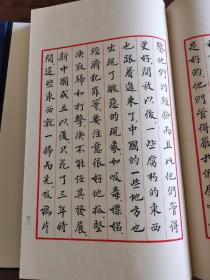 是好的他們管得嚴我
鑒他們的經驗而且比他們管得
更好開放以後一些腐朽的東西
也跟着進來了中國的一些地方也
出現了醜惡的現象如吸毒嫖娼
經濟犯罪等要注意很好地抓堅
決取締和打擊決不能任其發展
新中國成立以後只花了三年時
間這些東西就一掃而光吸鴉片